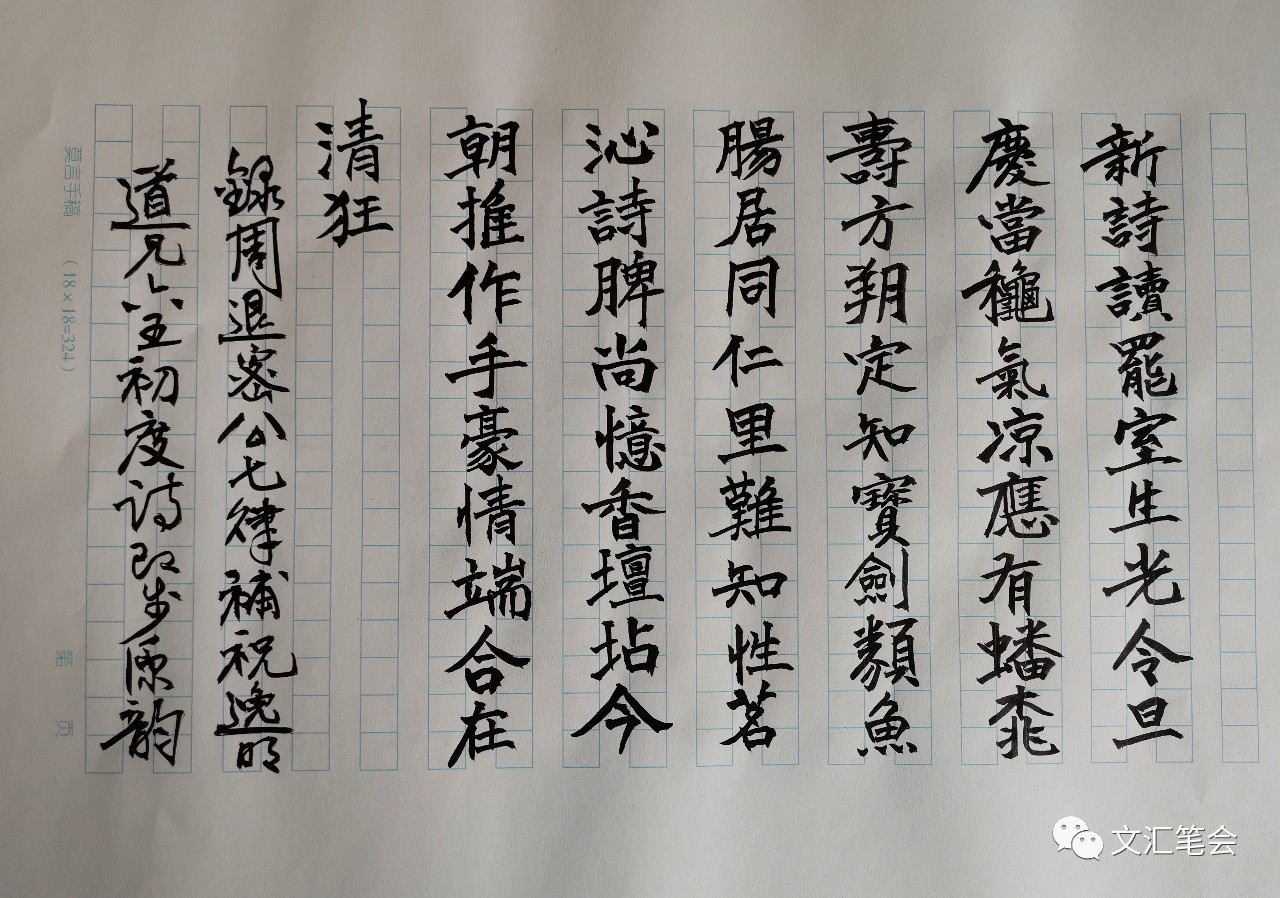 新詩讀罷室生光令旦
慶當穐氣凉應有蟠桃
壽方朔定知寶劍纇魚
腸居同仁里難知性茗
沁詩脾尚憶香壇坫今
朝推作手豪情端合在
清狂
録周退密公七律補祝逸明
道兄六五初度詩即步原韵
莫言手稿 (18×18=324) 第 页
文汇笔会